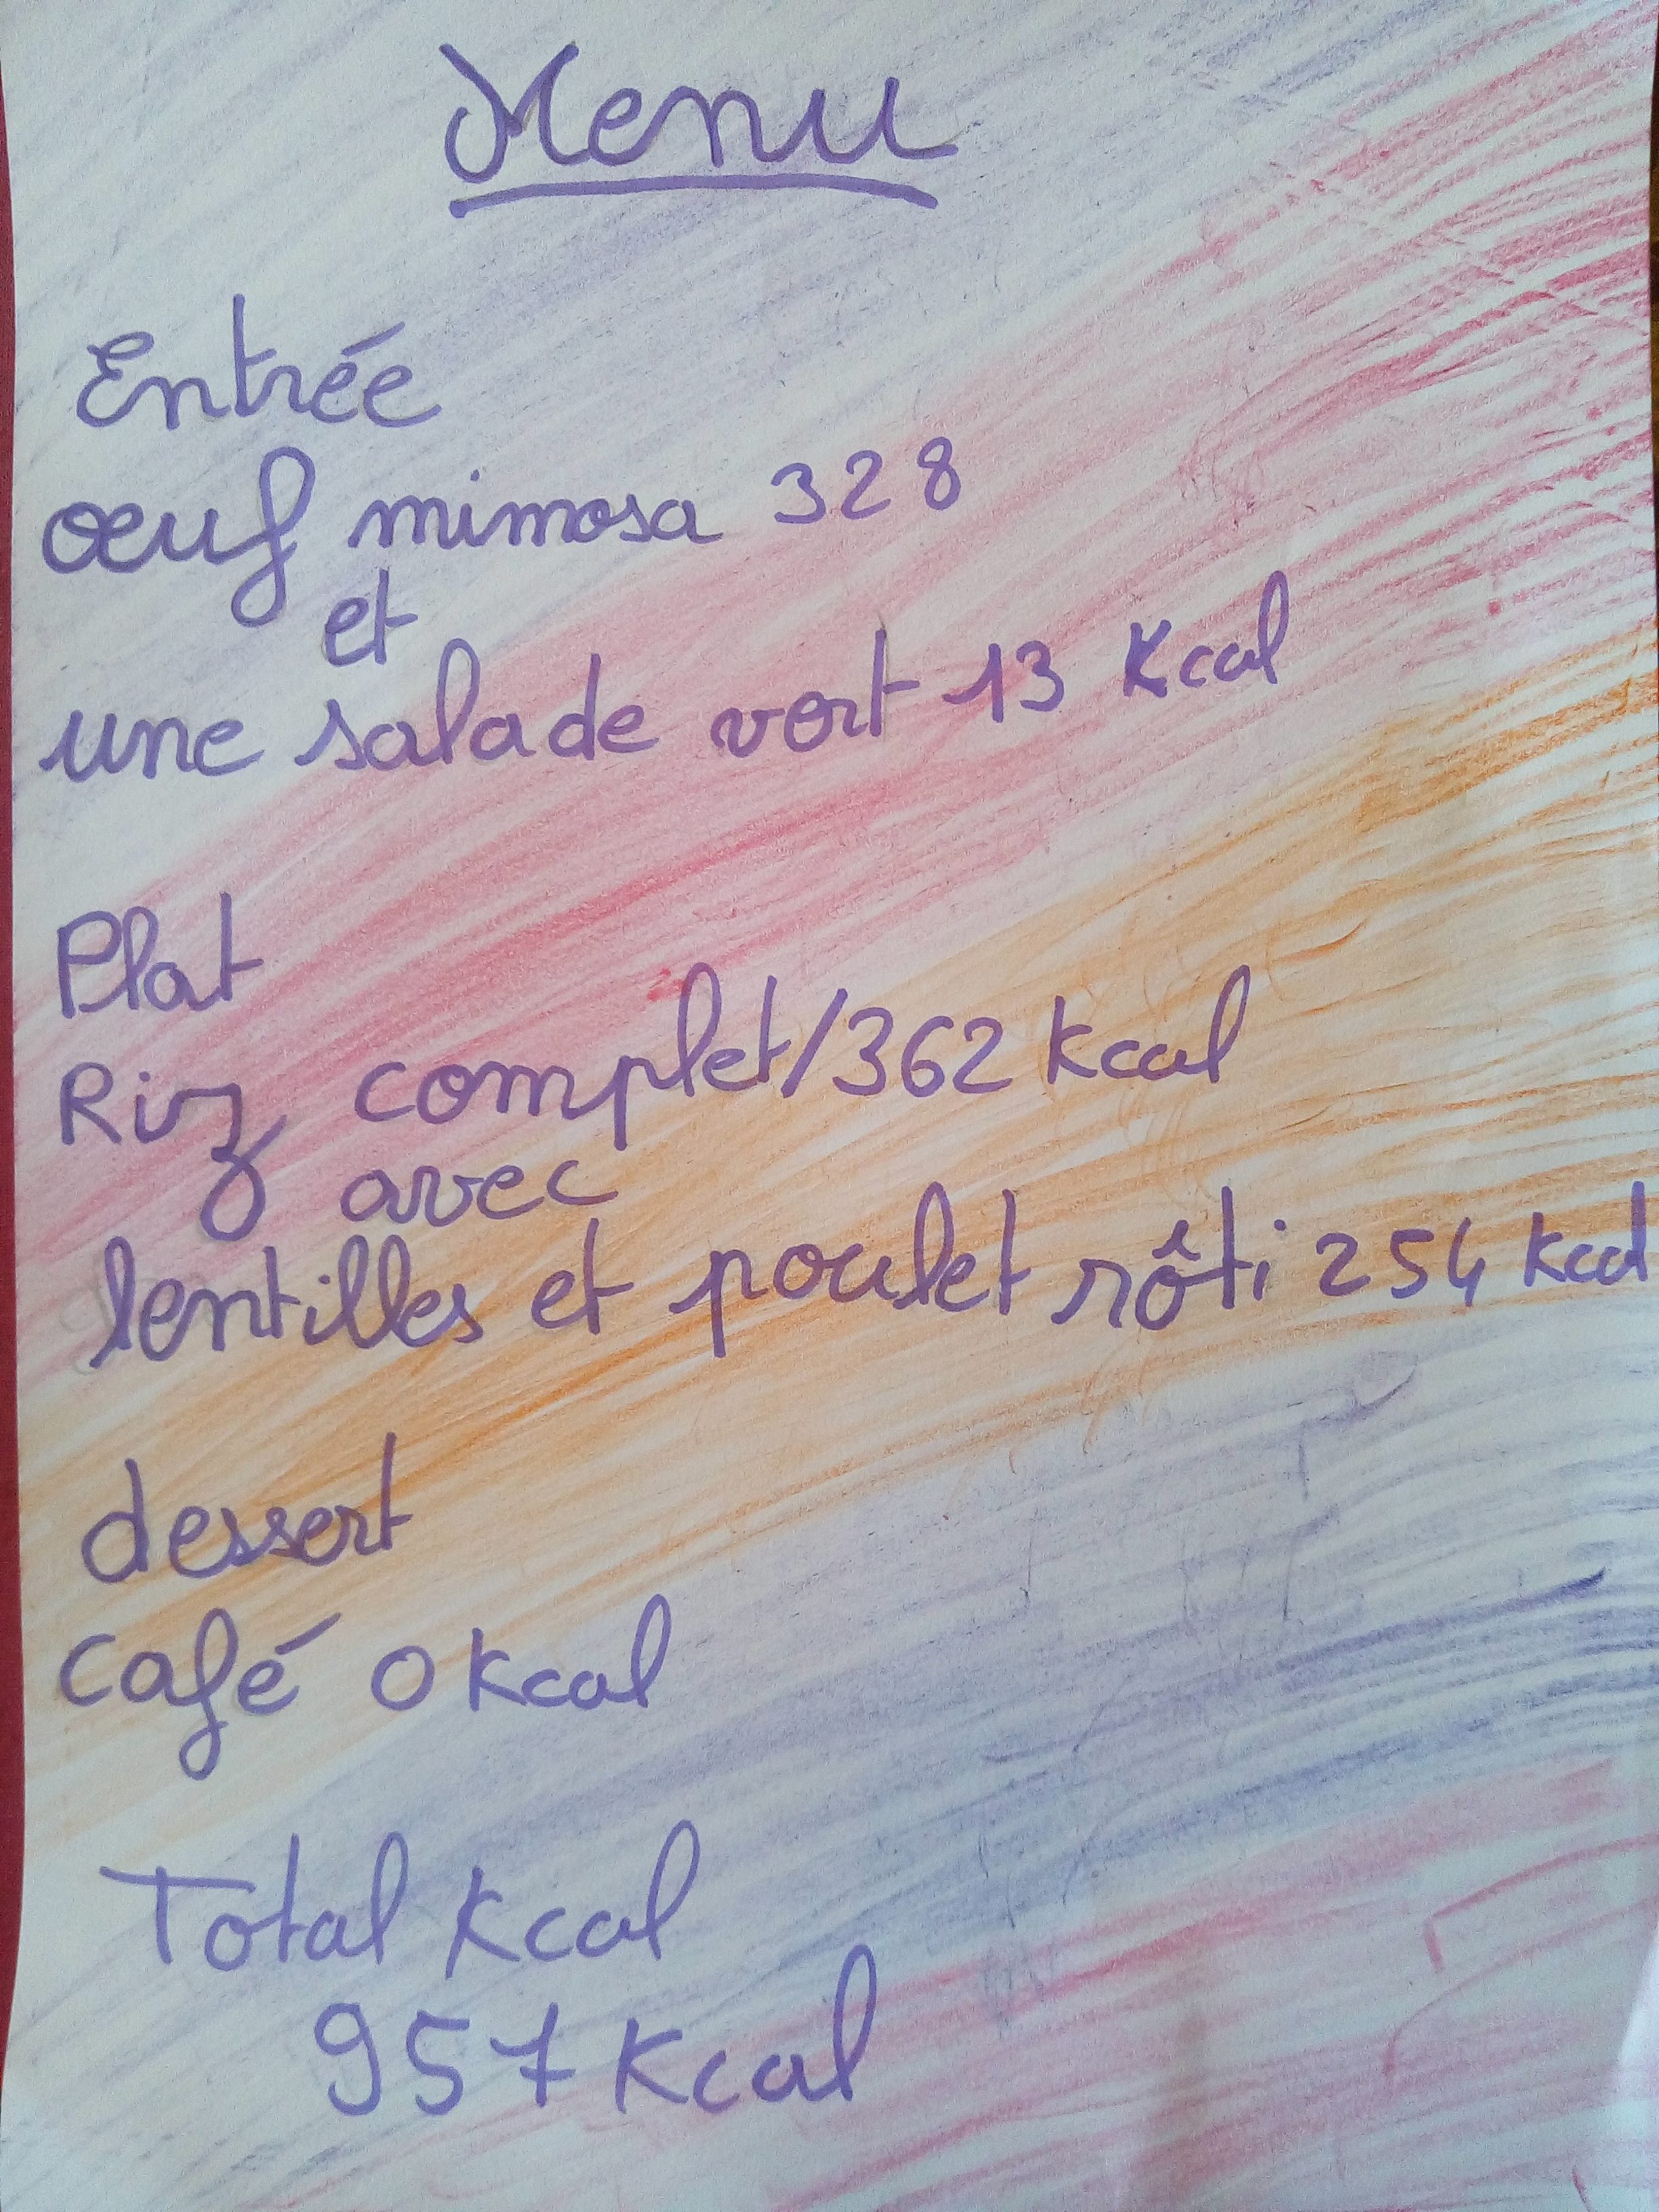 Menu
Entrée
œuf mimosa 328
et
une salade vert 13 Kcal
Plat
Riz complet/362 Kcal
avec
lentilles et poulet rôti 254 Kcal
dessert
Café 0 Kcal
Total Kcal
957 Kcal